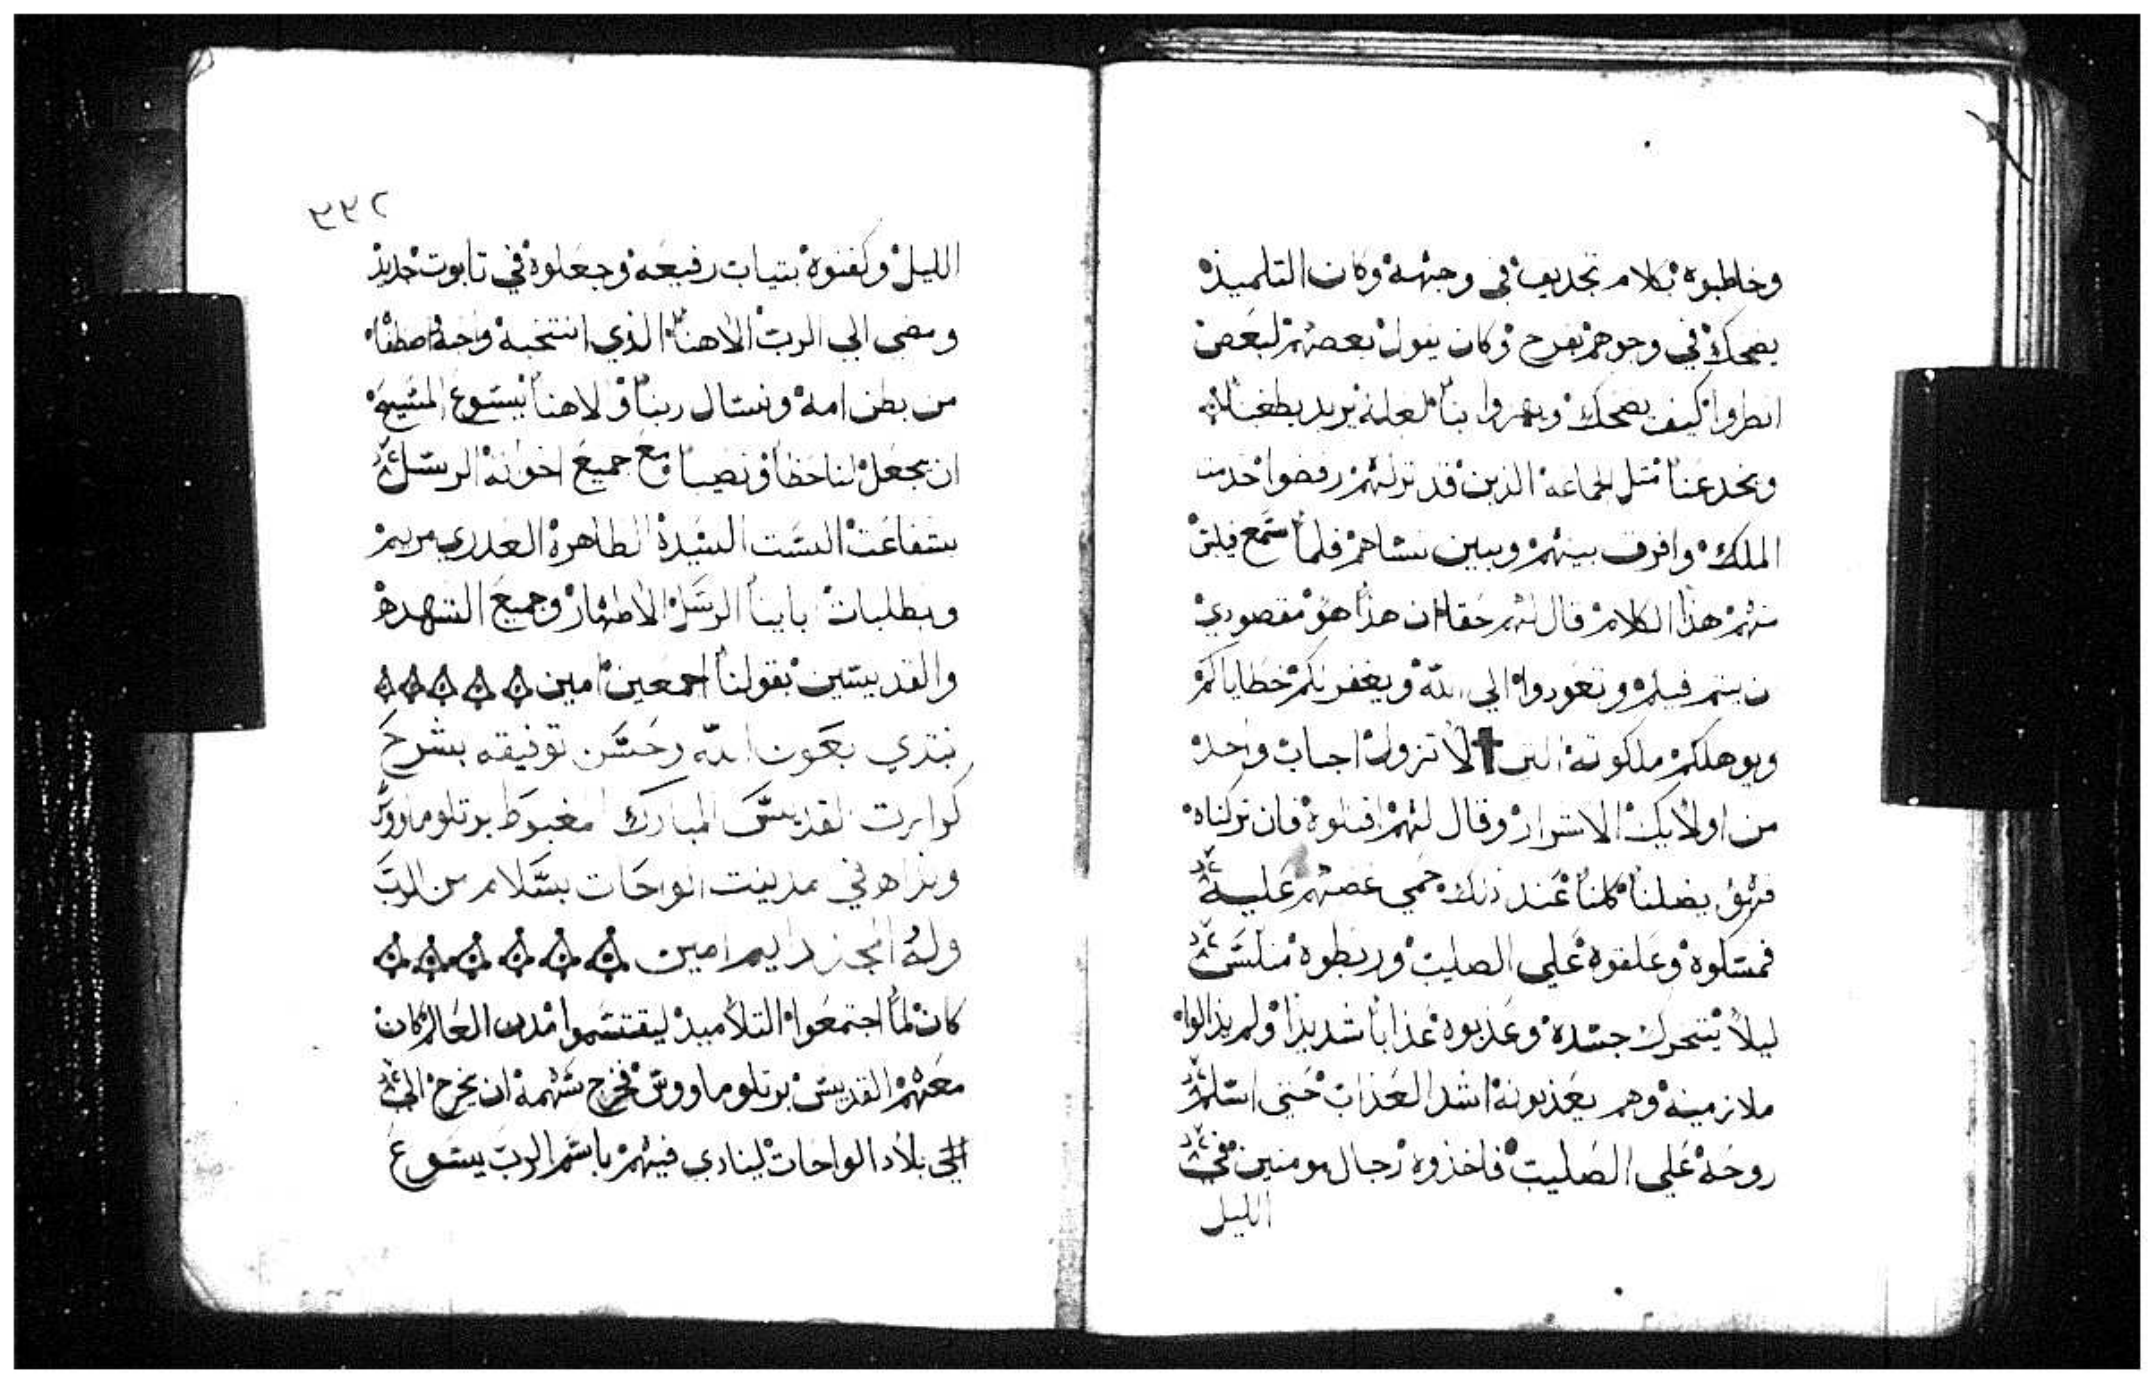 وخاطبوه بكلام تجديف في وجهه وكان التلميذ
يضحك في وجوههم بفرح وكان يقول بعضهم لبعض
انطروا كيف يضحك ويهزوا بنا لعله يريد يطغنا
ويخدعنا مثل الجماعة الذين قد تركهم رفضوا خدمت
الملك وافرق بينهم وبين نساهم فلما سمع فيلبس
منهم هذا الكلام قال لهم حقا ان هذا هو مقصودي
فيكم وتعودوا الي الله ويغفر لكم خطاياكم
ويوهلكم ملكوته التي لا تزول اجاب واحد
من اولايك الاشرار وقال لهم اقتلوه فان تركناه
فهو يضلنا كلنا عند ذلك حمي غضبهم عليه
فمسكوه وعلقوه علي الصليب وربطوه منكس
ليلا يتحرك جسده وعذبوه عذابا شديدا ولم يزالوا
ملازمينه وهم يعذبونه اشد العذاب حتي اسلم
روحه علي الصليب فاخذوه رجال مومنين في
الليل
٢٢٢
الليل وكفنوه بتياب رفيعه وجعلوه في تابوت حديد
ومضي الي الرب الاهنا الذي انتخبه واحبه اصطفاه
من بطن امه ونسال ربنا والاهنا يسوع المسيح
ان يجعل لنا حظا ونصيبا مع جميع اخوته الرسل
بشفاعت الست السيدة الطاهرة العدري مريم
وبطلبات ابائنا الرسل الاطهار وجميع الشهده
والقديسين بقولنا اجمعين امين
نبتدي بعون الله وحسن توفيقه بشرح
كرازت القديس المبارك المغبوط برتلوماووس
ونداه في مدينت الواحات بسلام من الرب
وله المجد دايم امين
كان لما اجتمعوا التلاميد ليقتسموا مدن العالم كان
معهم القديس برتلوماووس فخرج سهمه ان يخرج الي
الي بلاد الواحات لينادي فيهم باسم الرب يسوع